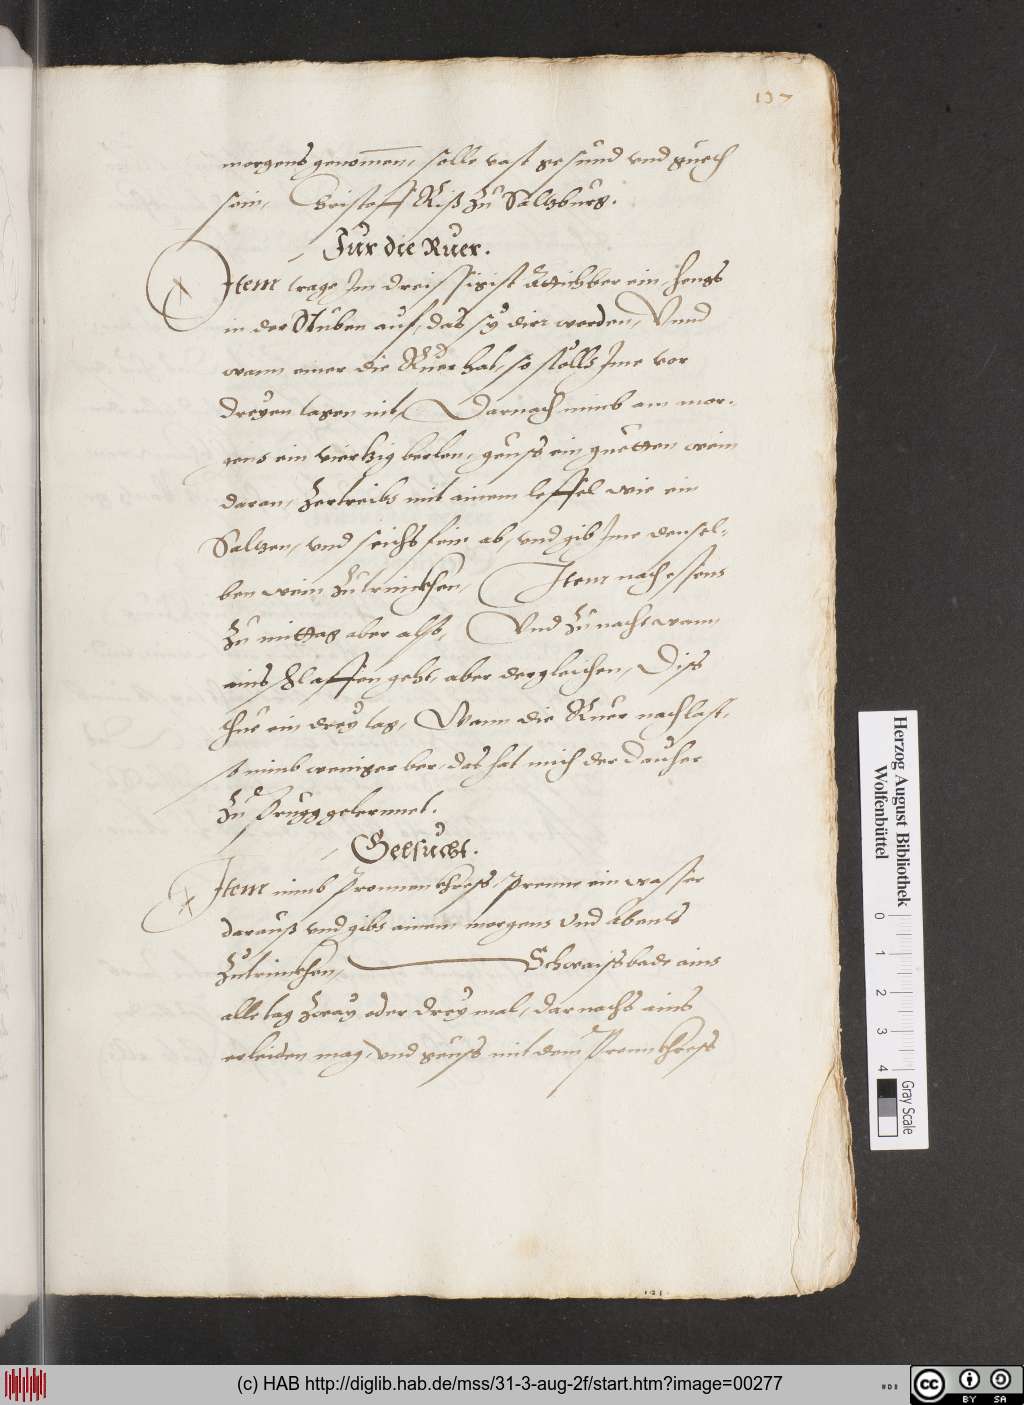 137
morgens genomen, solle vast gesund vnd guech
sein, Cristoff Riß zu Saltzburg.
Fur die Ruer.
Item trage Im dreissigist Attichber ein hengs
in der Stuben auf, das sy dirr werden, Vnnd
wann einer die Ruer hat, so stells Ime vor
dreyen tagen nit, Darnach nimb am mor-
gens ein viertzig berlen, geuss ein guetten wein
daran, Zertreibs mit ainem leffel wie ein
Saltzen, vnd seichs fein ab, vnd gib Ime densel-
ben wein Zutrinckhen, Item nach essens
Zu mittag aber also, Vnd Zu nacht wann
ains schlaffen geht, aber dergleichen, Diss
thue ein drey tag, Wann die Ruer nachlast,
so nimb weniger ber, das hat mich der Dauher
Zu Prugg gelernnet.
Gelsucht.
Item nimb Pronnen khress, Prenne ein wasser
darauß vnd gibs ainem morgens Vnd Abents
Zutrinckhen, Schwaissbade ains
alle tag Zway oder drey mal, darnachs ains
erleiden mag, vnd geuss mit dem Pronn khress
Herzog August Bibliothek
Wolfenbüttel
0 1 2 3 4
Gray Scale
(c) HAB http://diglib.hab.de/mss/31-3-aug-2f/start.htm?image=00277
cc BY SA